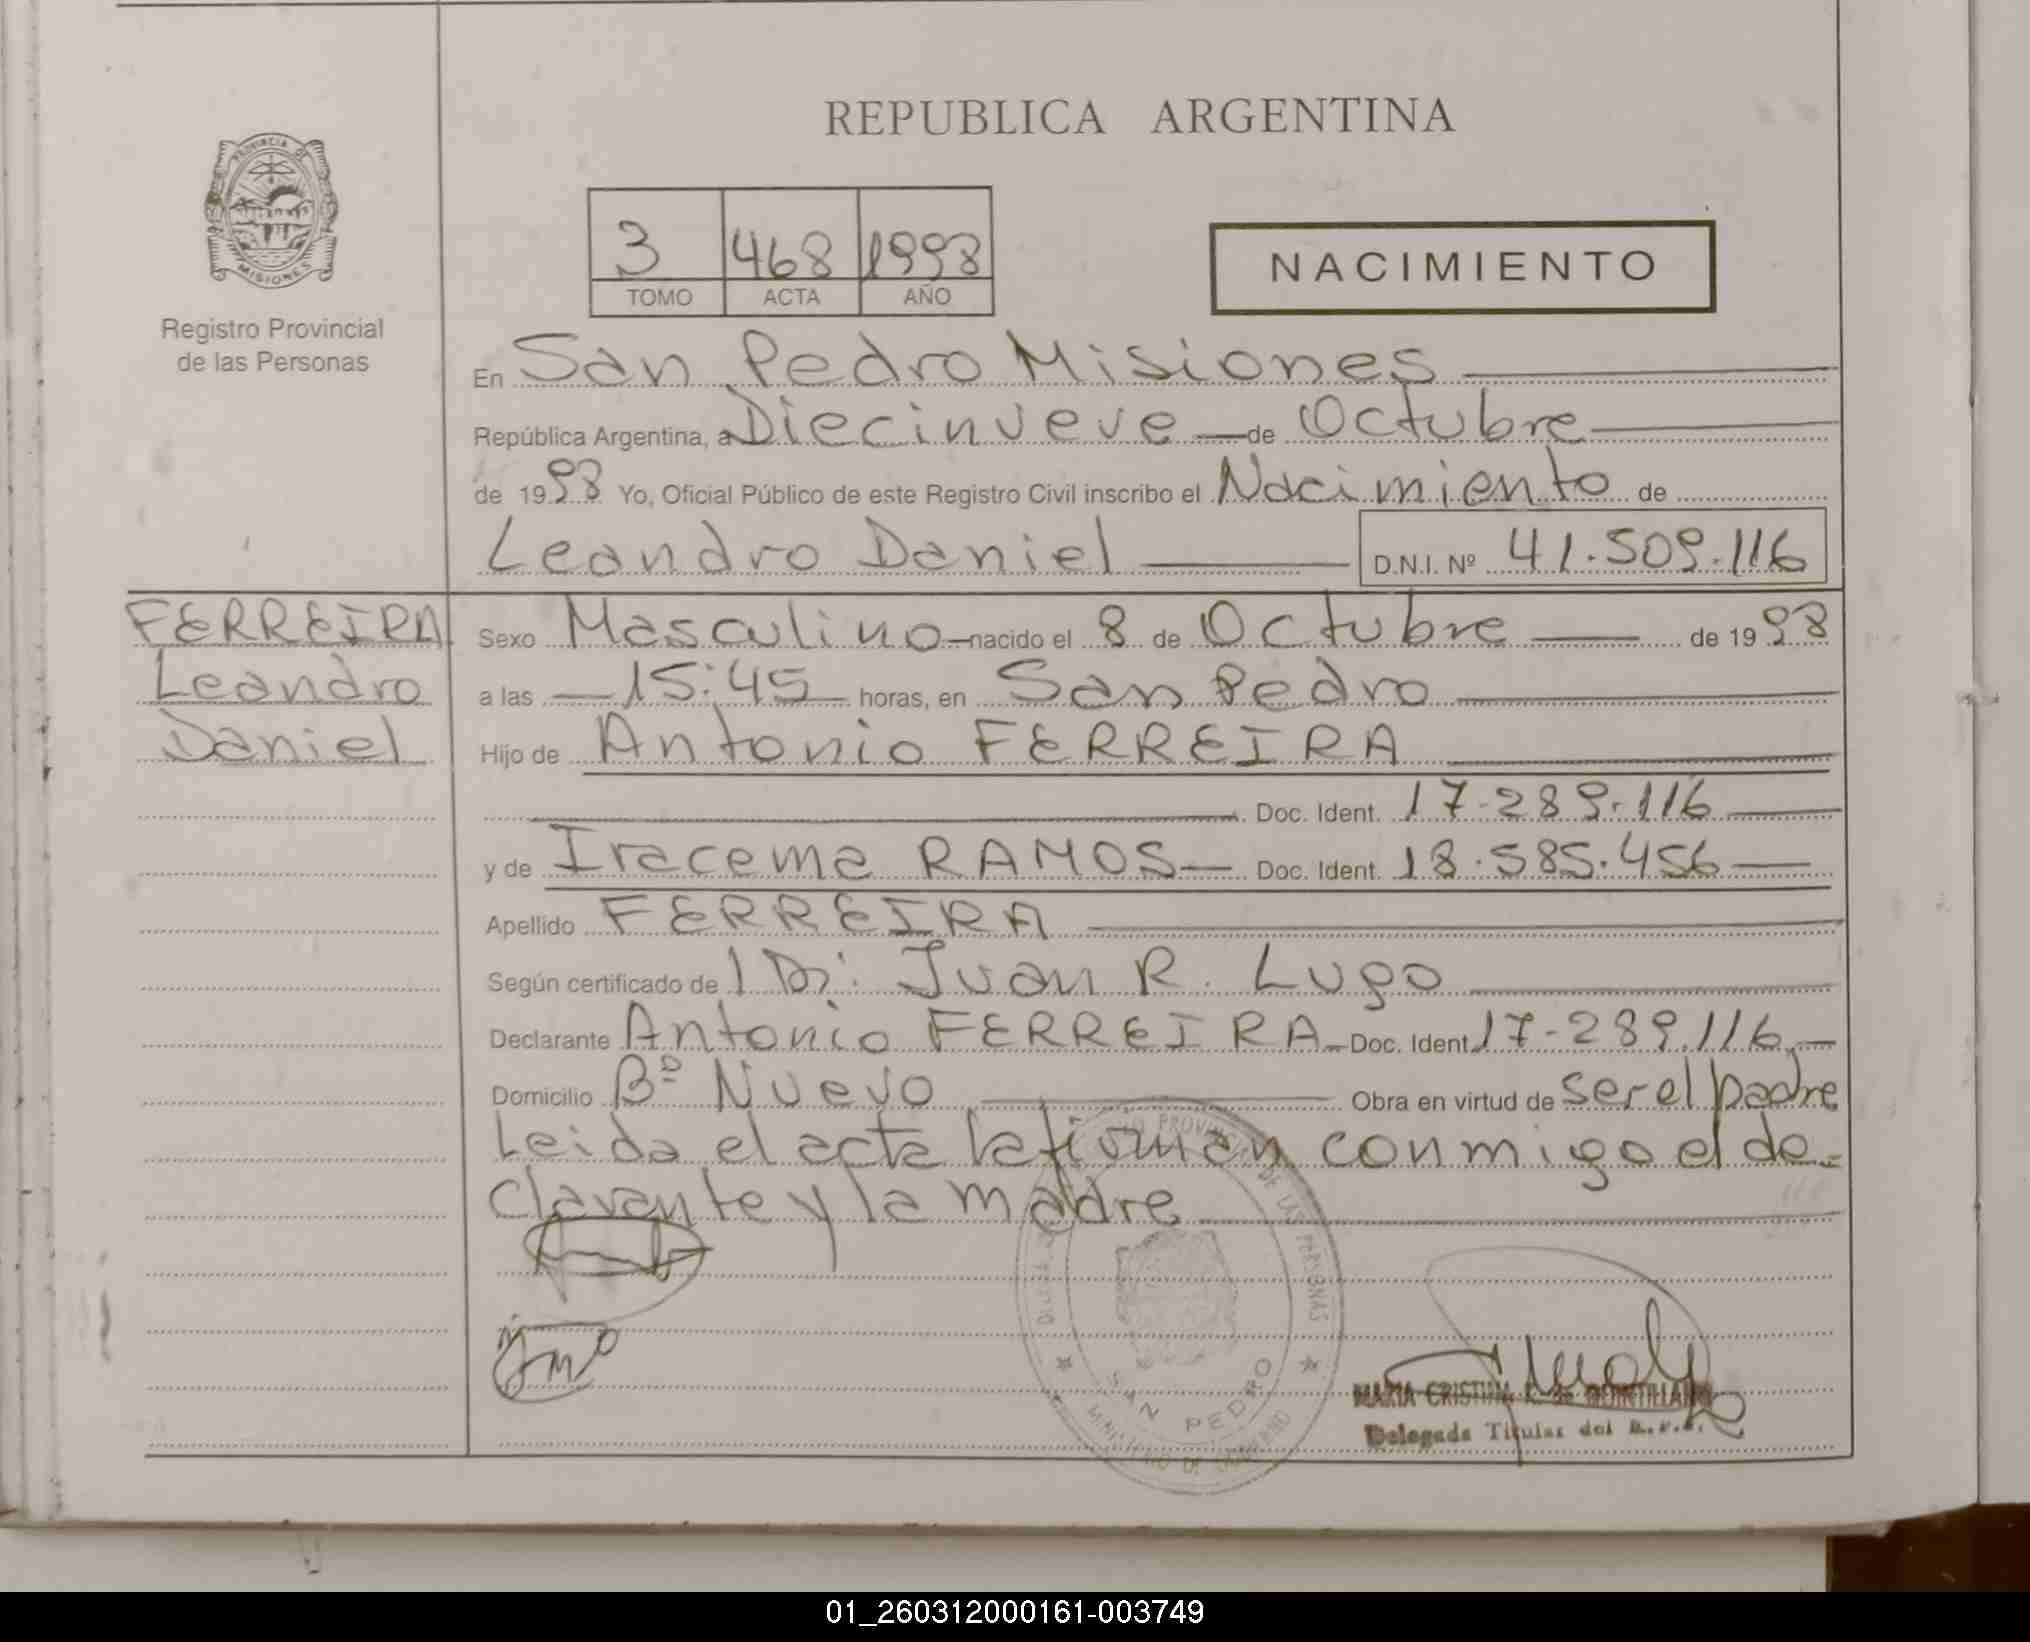 REPUBLICA ARGENTINA
PROVINCIA DE
MISIONES
Registro Provincial
de las Personas
3 468 1998
TOMO ACTA AÑO
NACIMIENTO
En San Pedro Misiones
República Argentina, a Diecinueve de Octubre
de 1998 Yo, Oficial Público de este Registro Civil inscribo el Nacimiento de
Leandro Daniel D.N.I. Nº 41.509.116
FERREIRA
Leandro
Daniel
Sexo Masculino nacido el 8 de Octubre de 1998
a las 15:45 horas, en San Pedro
Hijo de Antonio FERREIRA
Doc. Ident. 17.289.116
y de Iracema RAMOS Doc. Ident. 18.585.456
Apellido FERREIRA
Según certificado de Juan R. Lugo
Declarante Antonio FERREIRA Doc. Ident. 17-289.116
Domicilio Bº Nuevo Obra en virtud de ser el padre
Leida el acta la firman conmigo el de-
clarante y la madre
PROVINCIAL DE LAS PERSONAS
SAN PEDRO
MINISTERIO DE GOBIERNO
MARIA CRISTINA R. de QUINTILLANO
Delegada Titular del R.P.P.
01_260312000161-003749